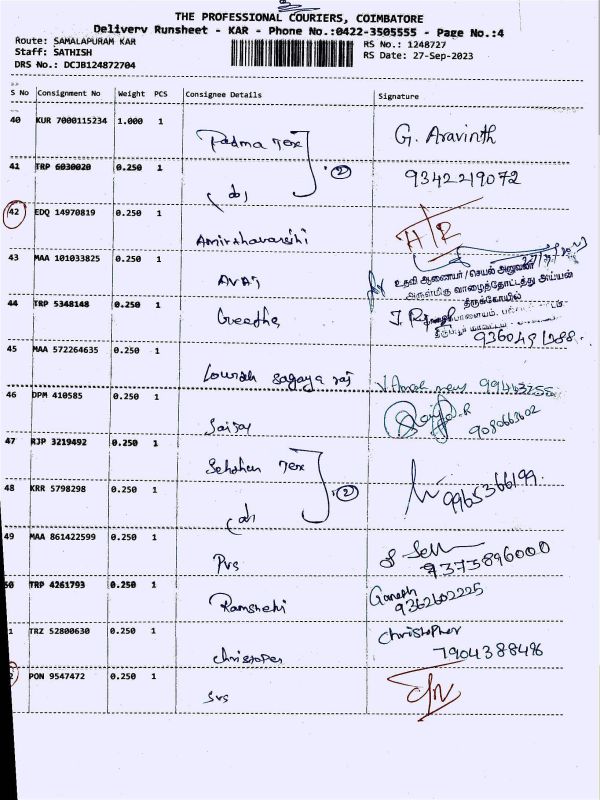 THE PROFESSIONAL COURIERS, COIMBATORE
Delivery Runsheet - KAR - Phone No.:0422-3505555 - Page No.:4
Route: SAMALAPURAM KAR
Staff: SATHISH
DRS No.: DCJB124872704
RS No.: 1248727
RS Date: 27-Sep-2023
S No Consignment No Weight PCS Consignee Details Signature
40 KUR 7000115234 1.000 1 Padma Tex G. Aravinth
41 TRP 6030020 0.250 1 (do) (2) 9342219072
42 EDQ 14970819 0.250 1 Amirthavarshi
43 MAA 101033825 0.250 1
உதவி ஆணையர் / செயல் அலுவலர்
அருள்மிகு வாழைத்தோட்டத்து அய்யன்
திருக்கோயில்
44 TRP 5348148 0.250 1 Geetha
45 MAA 572264635 0.250 1 Lourdh Sagaya raj
46 DPM 410585 0.250 1 9080663602
47 RJP 3219492 0.250 1 Tex
48 KRR 5798298 0.250 1 (do) (2) 9965366199
49 MAA 861422599 0.250 1 Pvs 9373896000
50 TRP 4261793 0.250 1 Ganesh
9362602225
1 TRZ 52800630 0.250 1 christoper christopher
7904388496
2 PON 9547472 0.250 1 svs